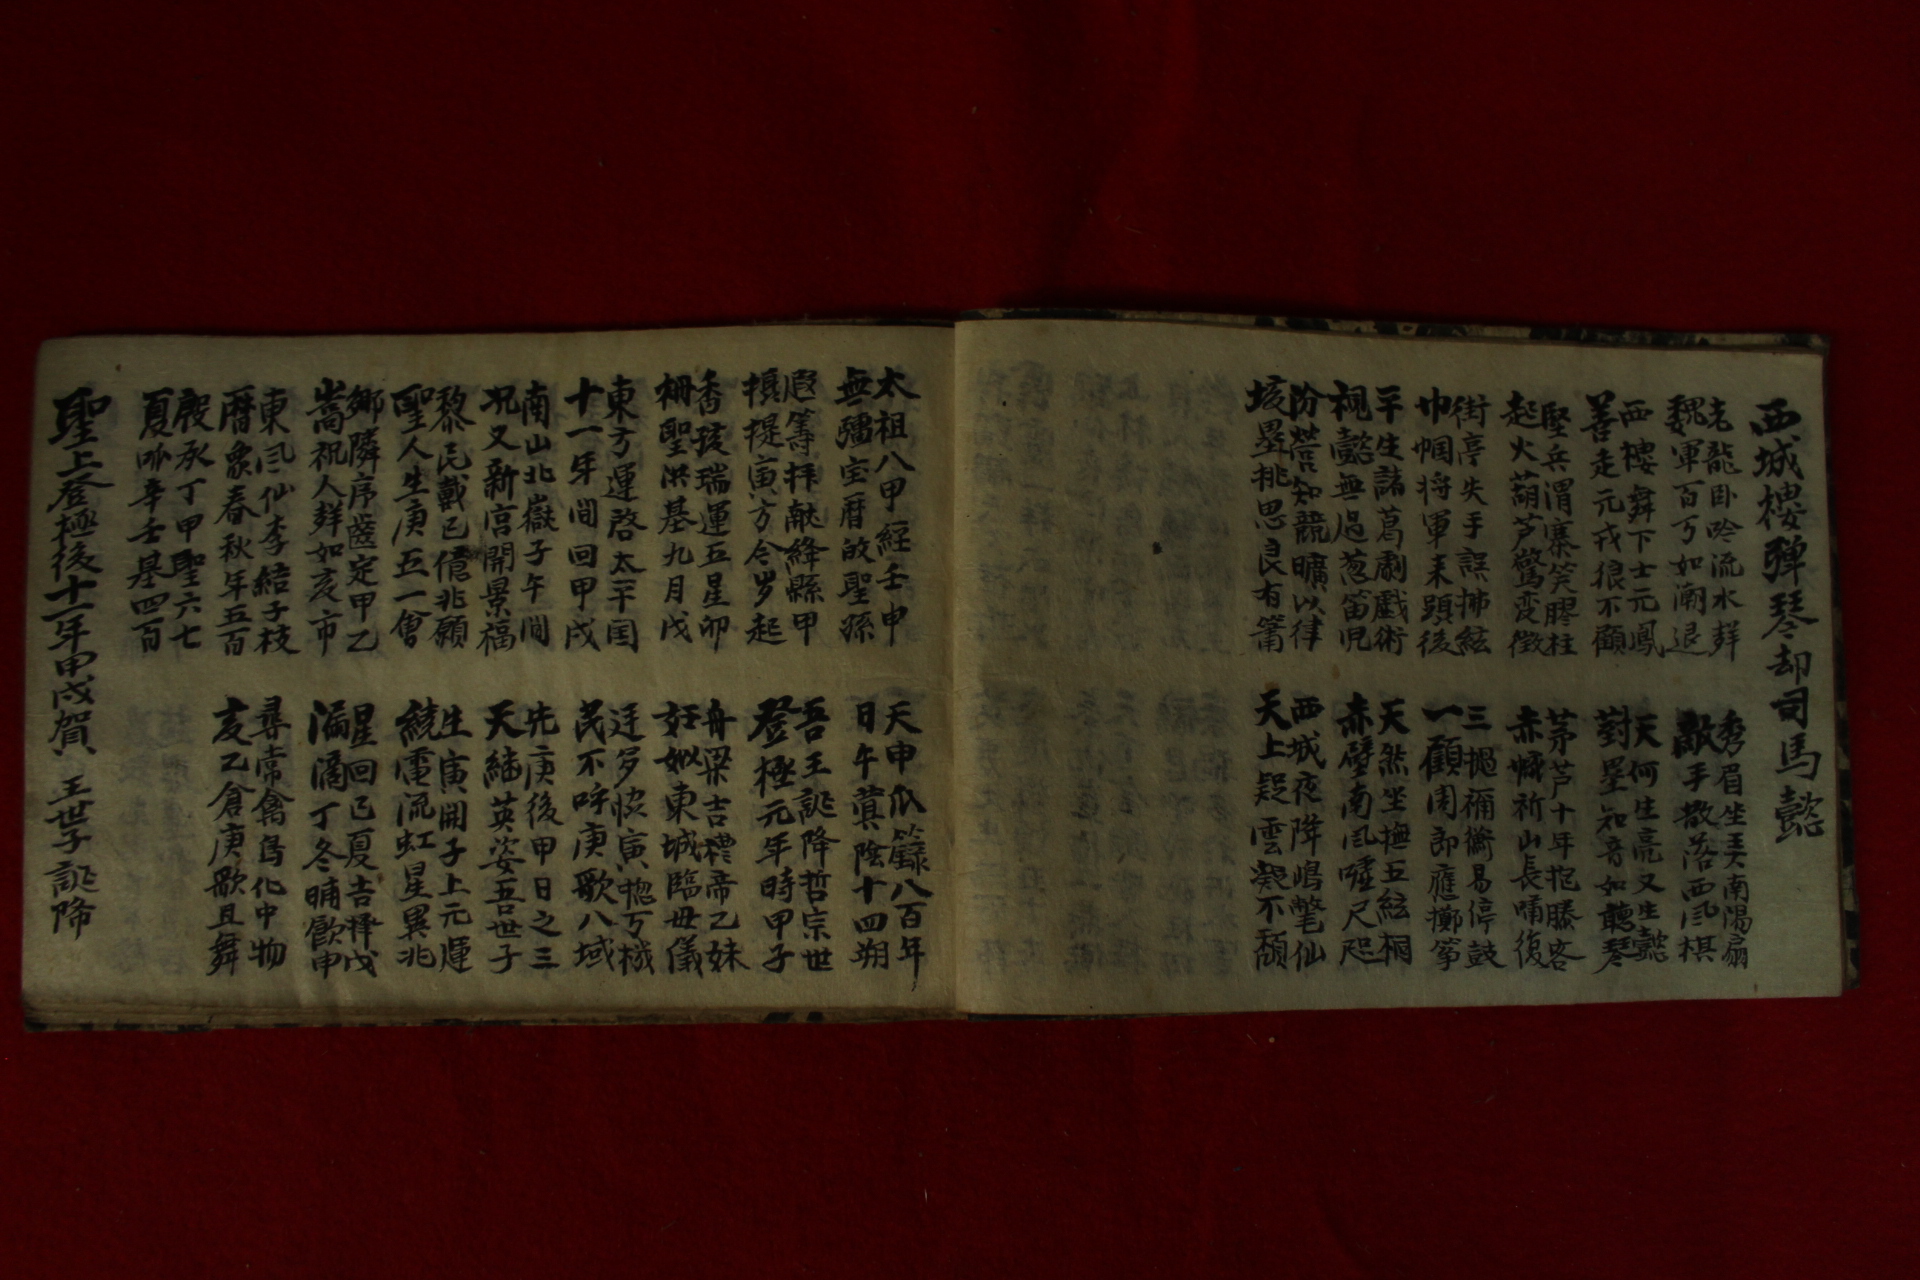 西城樓弹琴却司馬懿
老龍臥吟流水羣
魏軍百万如潮退
西樓舞下士元鳳
善走元戎狼不顧
堅兵渭寨笑膠柱
起火葫芦驚变徵
街亭失手誤拂絃
巾幗将軍来頭後
平生諸葛劇戲術
視懿無過葱笛児
汾營知競曠以律
垓壘挑思良有簫
秀眉坐美南陽扇
敵手散落西风棋
天何生亮又生懿
對壘知音如聽琴
茅芦十年抱膝客
赤幟祈山長嘯復
三撾禰衡易停鼓
一顧周郎應擲筝
天然坐撫五絃桐
赤壁南风噓尺咫
西城夜降鳴鶩仙
天上疑雲凝不頹
太祖八甲經壬申
無彊宝曆啟聖孫
遐籌拜献絳縣甲
攝提寅方令岁起
香孩瑞運五星卯
柵聖洪基九月戊
東方運啓太平国
十一年間回甲戌
南山北嶽子午間
况又新宮開景福
黎民戴己億兆願
聖人生庚五一會
鄉隣序齒定甲乙
嵩祝人群如亥市
東风仙李結子枝
曆象春秋年五百
殷承丁甲聖六七
夏呼辛壬基四百
天申瓜籙八百年
日午蓂陰十四朔
吾王誕降哲宗世
登極元年時甲子
舟梁吉禮帝乙妹
妊姒東城臨毋儀
廷多恢寅惣万機
民不呼庚歌八域
先庚後甲日之三
天緒英姿吾世子
生寅開子上元運
繞電流虹星異兆
星回己夏吉擇戊
漏滴丁冬晡飲申
尋常禽鳥化中物
亥乙倉庚歌且舞
聖上登極後十一年甲戌賀 王世子誕降